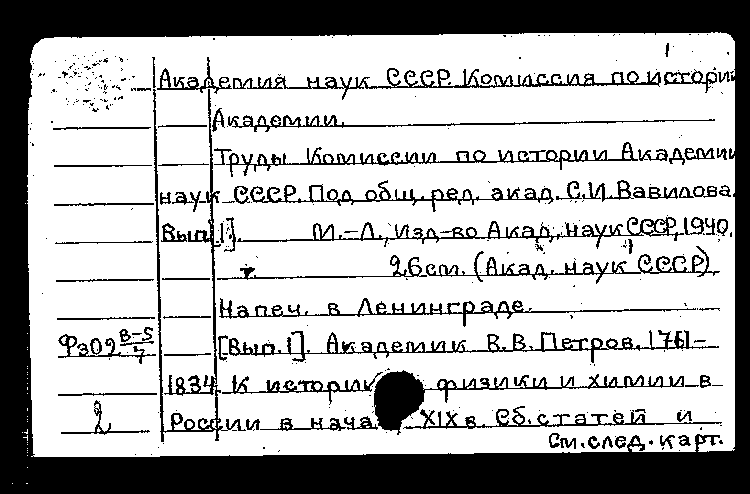 1
Академия наук СССР. Комиссия по истории
Академии.
Труды Комиссии по истории Академии
наук СССР. Под общ. ред. акад. С.И. Вавилова.
Вып.[1]. М.-Л., Изд-во Акад. наук СССР, 1940.
26см. (Акад. наук СССР)
Напеч. в Ленинграде.
Фз09 В-5/7 [Вып.1]. Академик В.В. Петров. 1761-
1834. К истории физики и химии в
2 России в нача XIX в. Сб. статей и
См. след. карт.